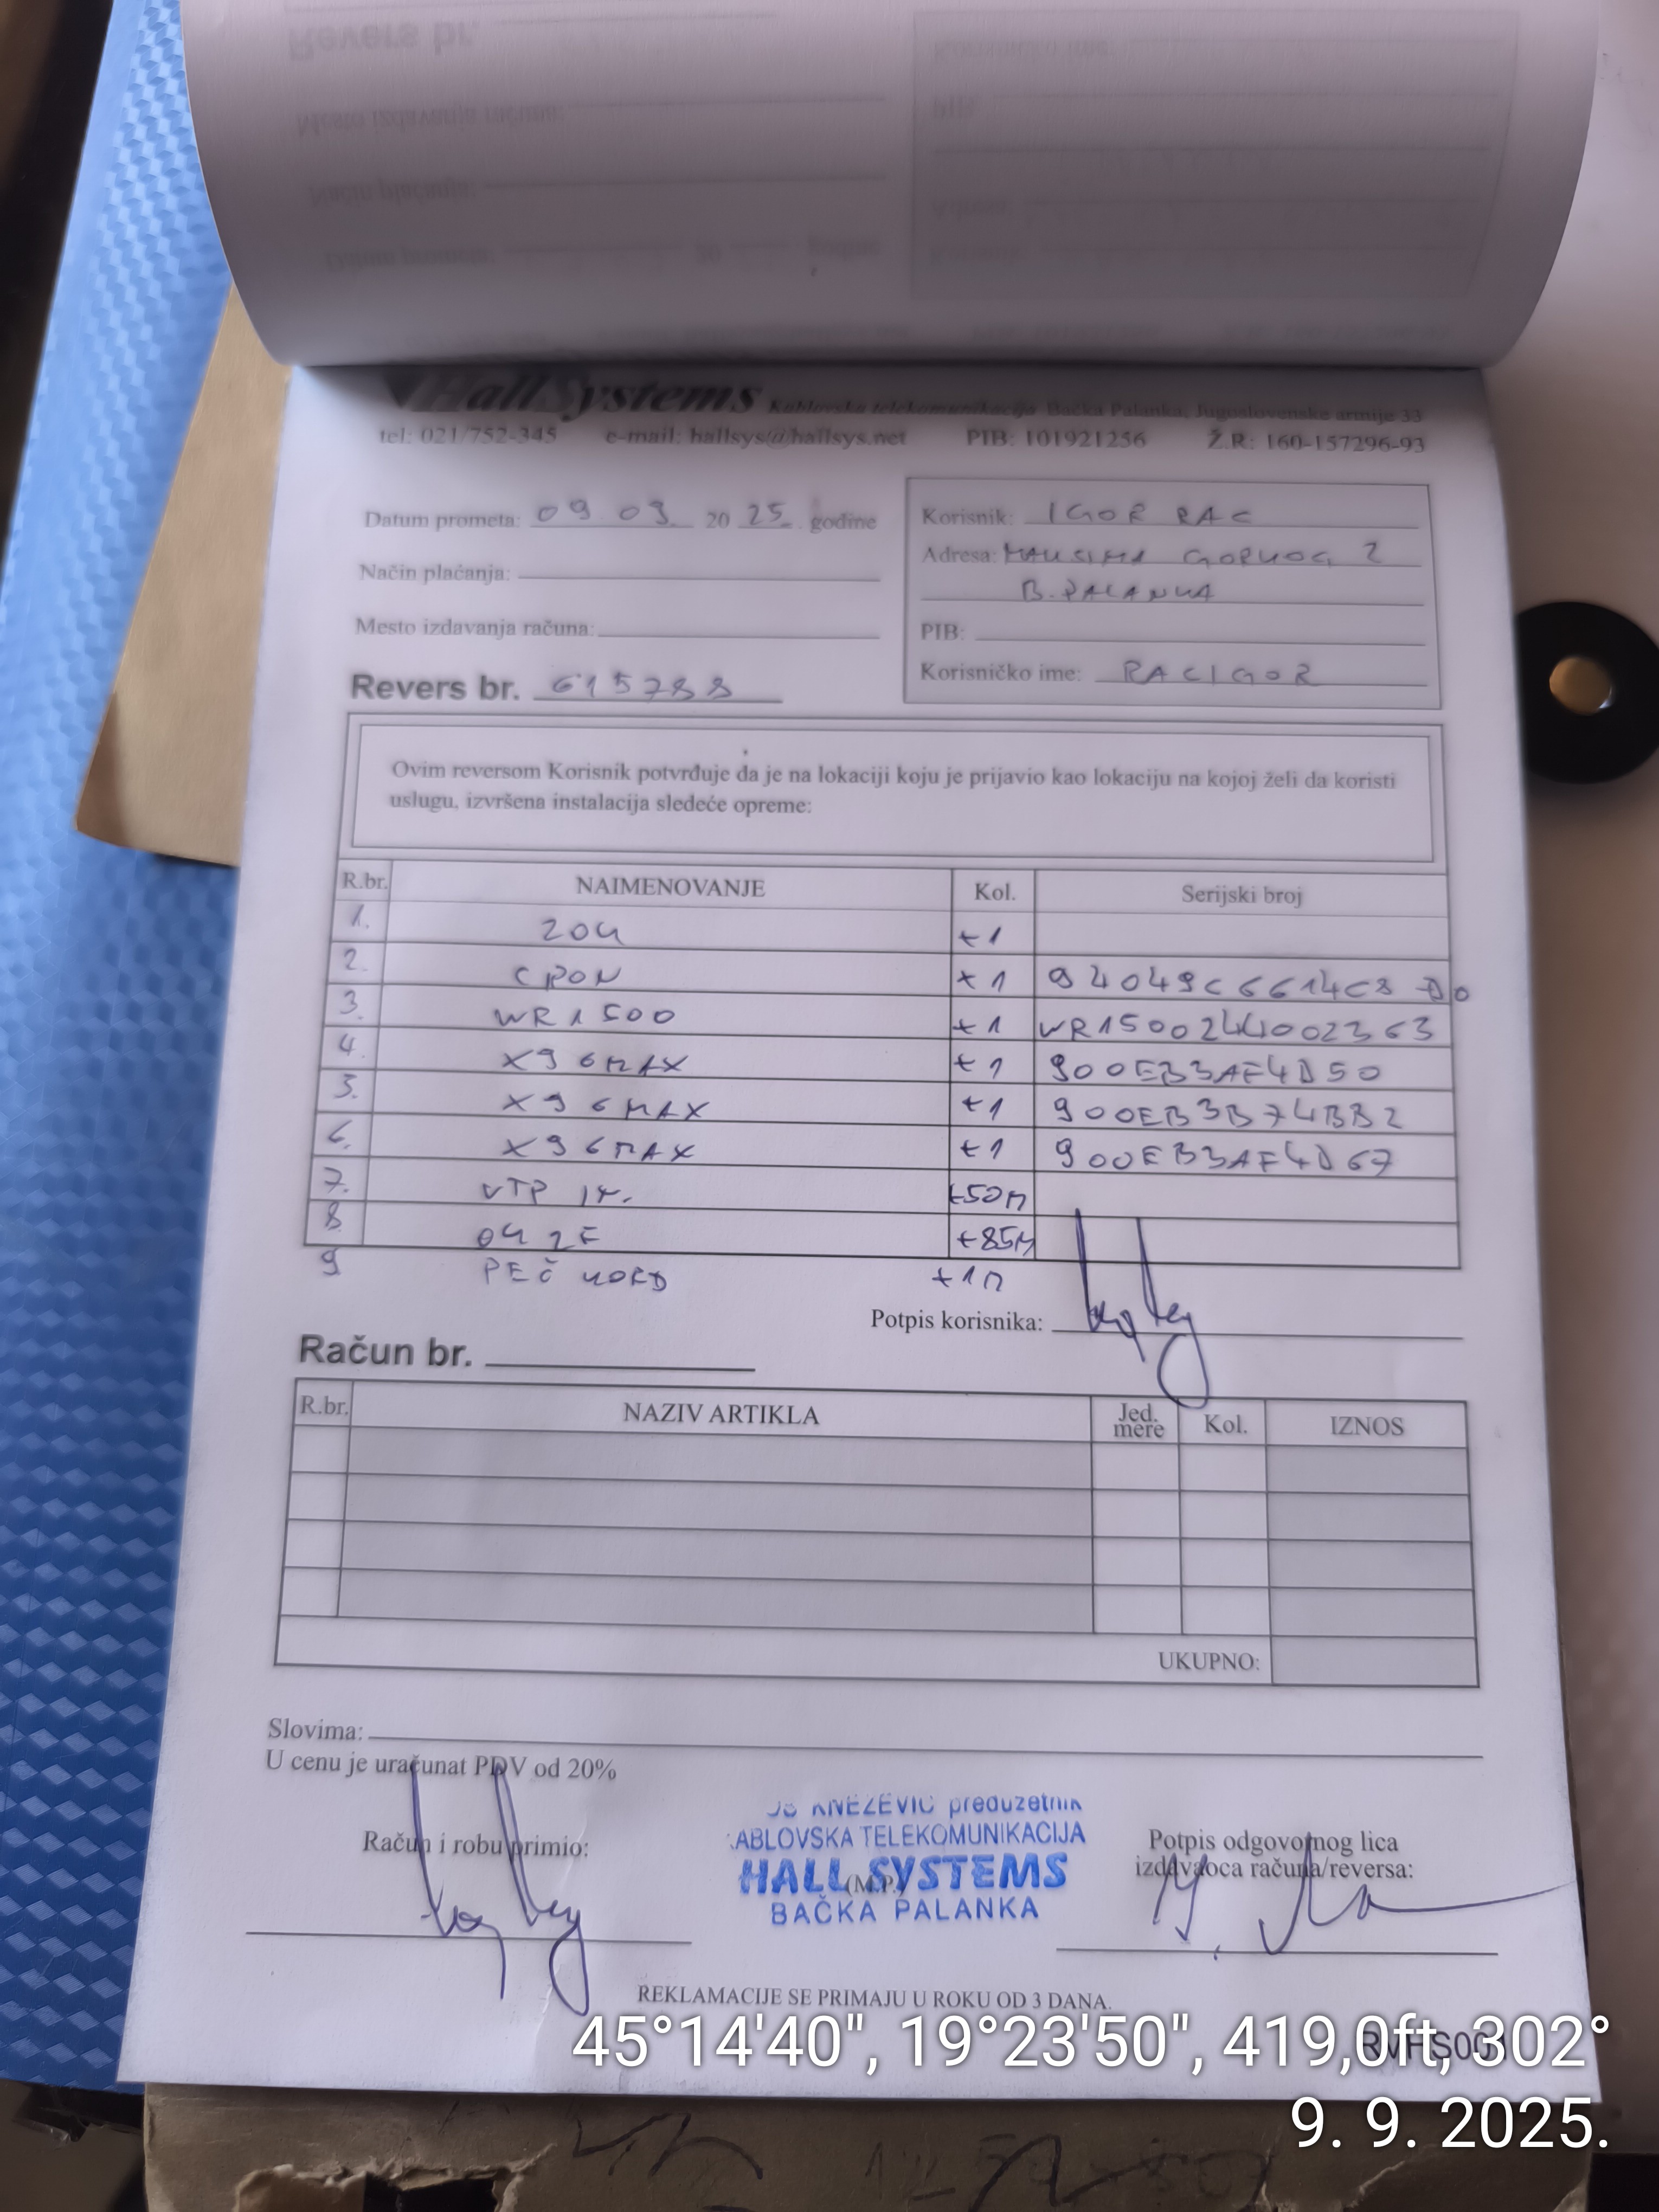 HallSystems Kablovska telekomunikacija Bačka Palanka, Jugoslovenske armije 33
tel: 021/752-345 e-mail: hallsys@hallsys.net PIB: 101921256 Ž.R: 160-157296-93
Datum prometa: 09 09 20 25. godine
Način plaćanja:
Mesto izdavanja računa:
Revers br. 615788
Korisnik: IGOR RAC
Adresa: MAKSIMA GORKOG 2
B. PALANKA
PIB:
Korisničko ime: RACIGOR
Ovim reversom Korisnik potvrđuje da je na lokaciji koju je prijavio kao lokaciju na kojoj želi da koristi
uslugu, izvršena instalacija sledeće opreme:
R.br. NAIMENOVANJE Kol. Serijski broj
1. ZOK +1
2. CPON +1 94049C6614C8 D0
3. WR1500 +1 WR1500244002363
4. X96MAX +1 900EB3AF4D50
5. X96MAX +1 900EB3B74BB2
6. X96MAX +1 900EB3AF4D67
7. UTP +50M
8. OK 2F +85M
9 PEČ KORD +1M
Potpis korisnika:
Račun br.
R.br. NAZIV ARTIKLA Jed. mere Kol. IZNOS
UKUPNO:
Slovima:
U cenu je uračunat PDV od 20%
KNEŽEVIĆ preduzetnik
ABLOVSKA TELEKOMUNIKACIJA
HALL SYSTEMS
(M.P.)
BAČKA PALANKA
Račun i robu primio:
Potpis odgovornog lica
izdavaoca računa/reversa:
REKLAMACIJE SE PRIMAJU U ROKU OD 3 DANA.
45°14'40", 19°23'50", 419,0ft, 302°
9. 9. 2025.